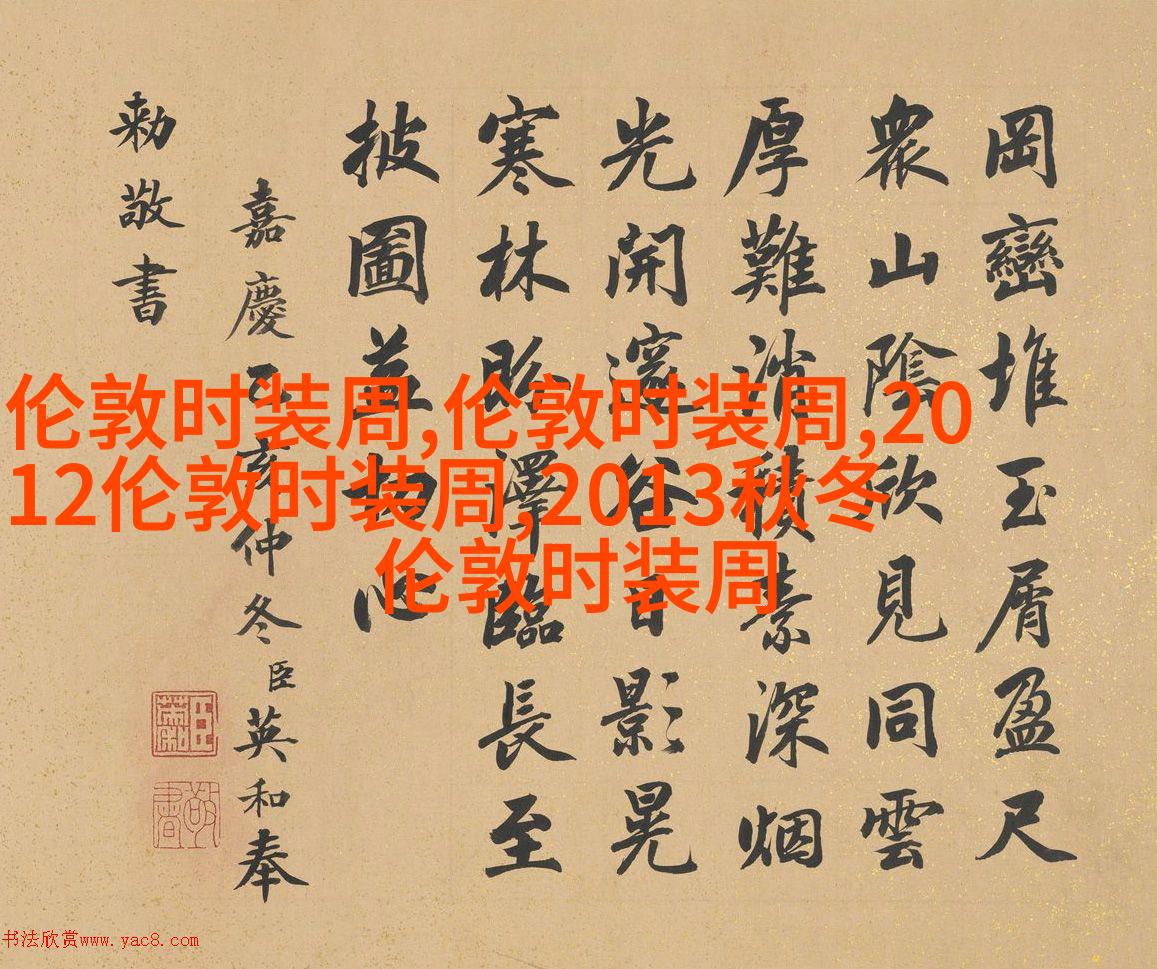 岡巒堆玉屑盈尺
衆山陰欣見同雲
厚難消積素深烟
光開邃谷日影晃
寒林盼澤臨長至
披圖益切心
嘉慶乙亥仲冬臣英和奉
勅敬書
敬書
伦敦时装周,伦敦时装周,20
12伦敦时装周,2013秋冬
伦敦时装周
书法欣赏www.yac8.com